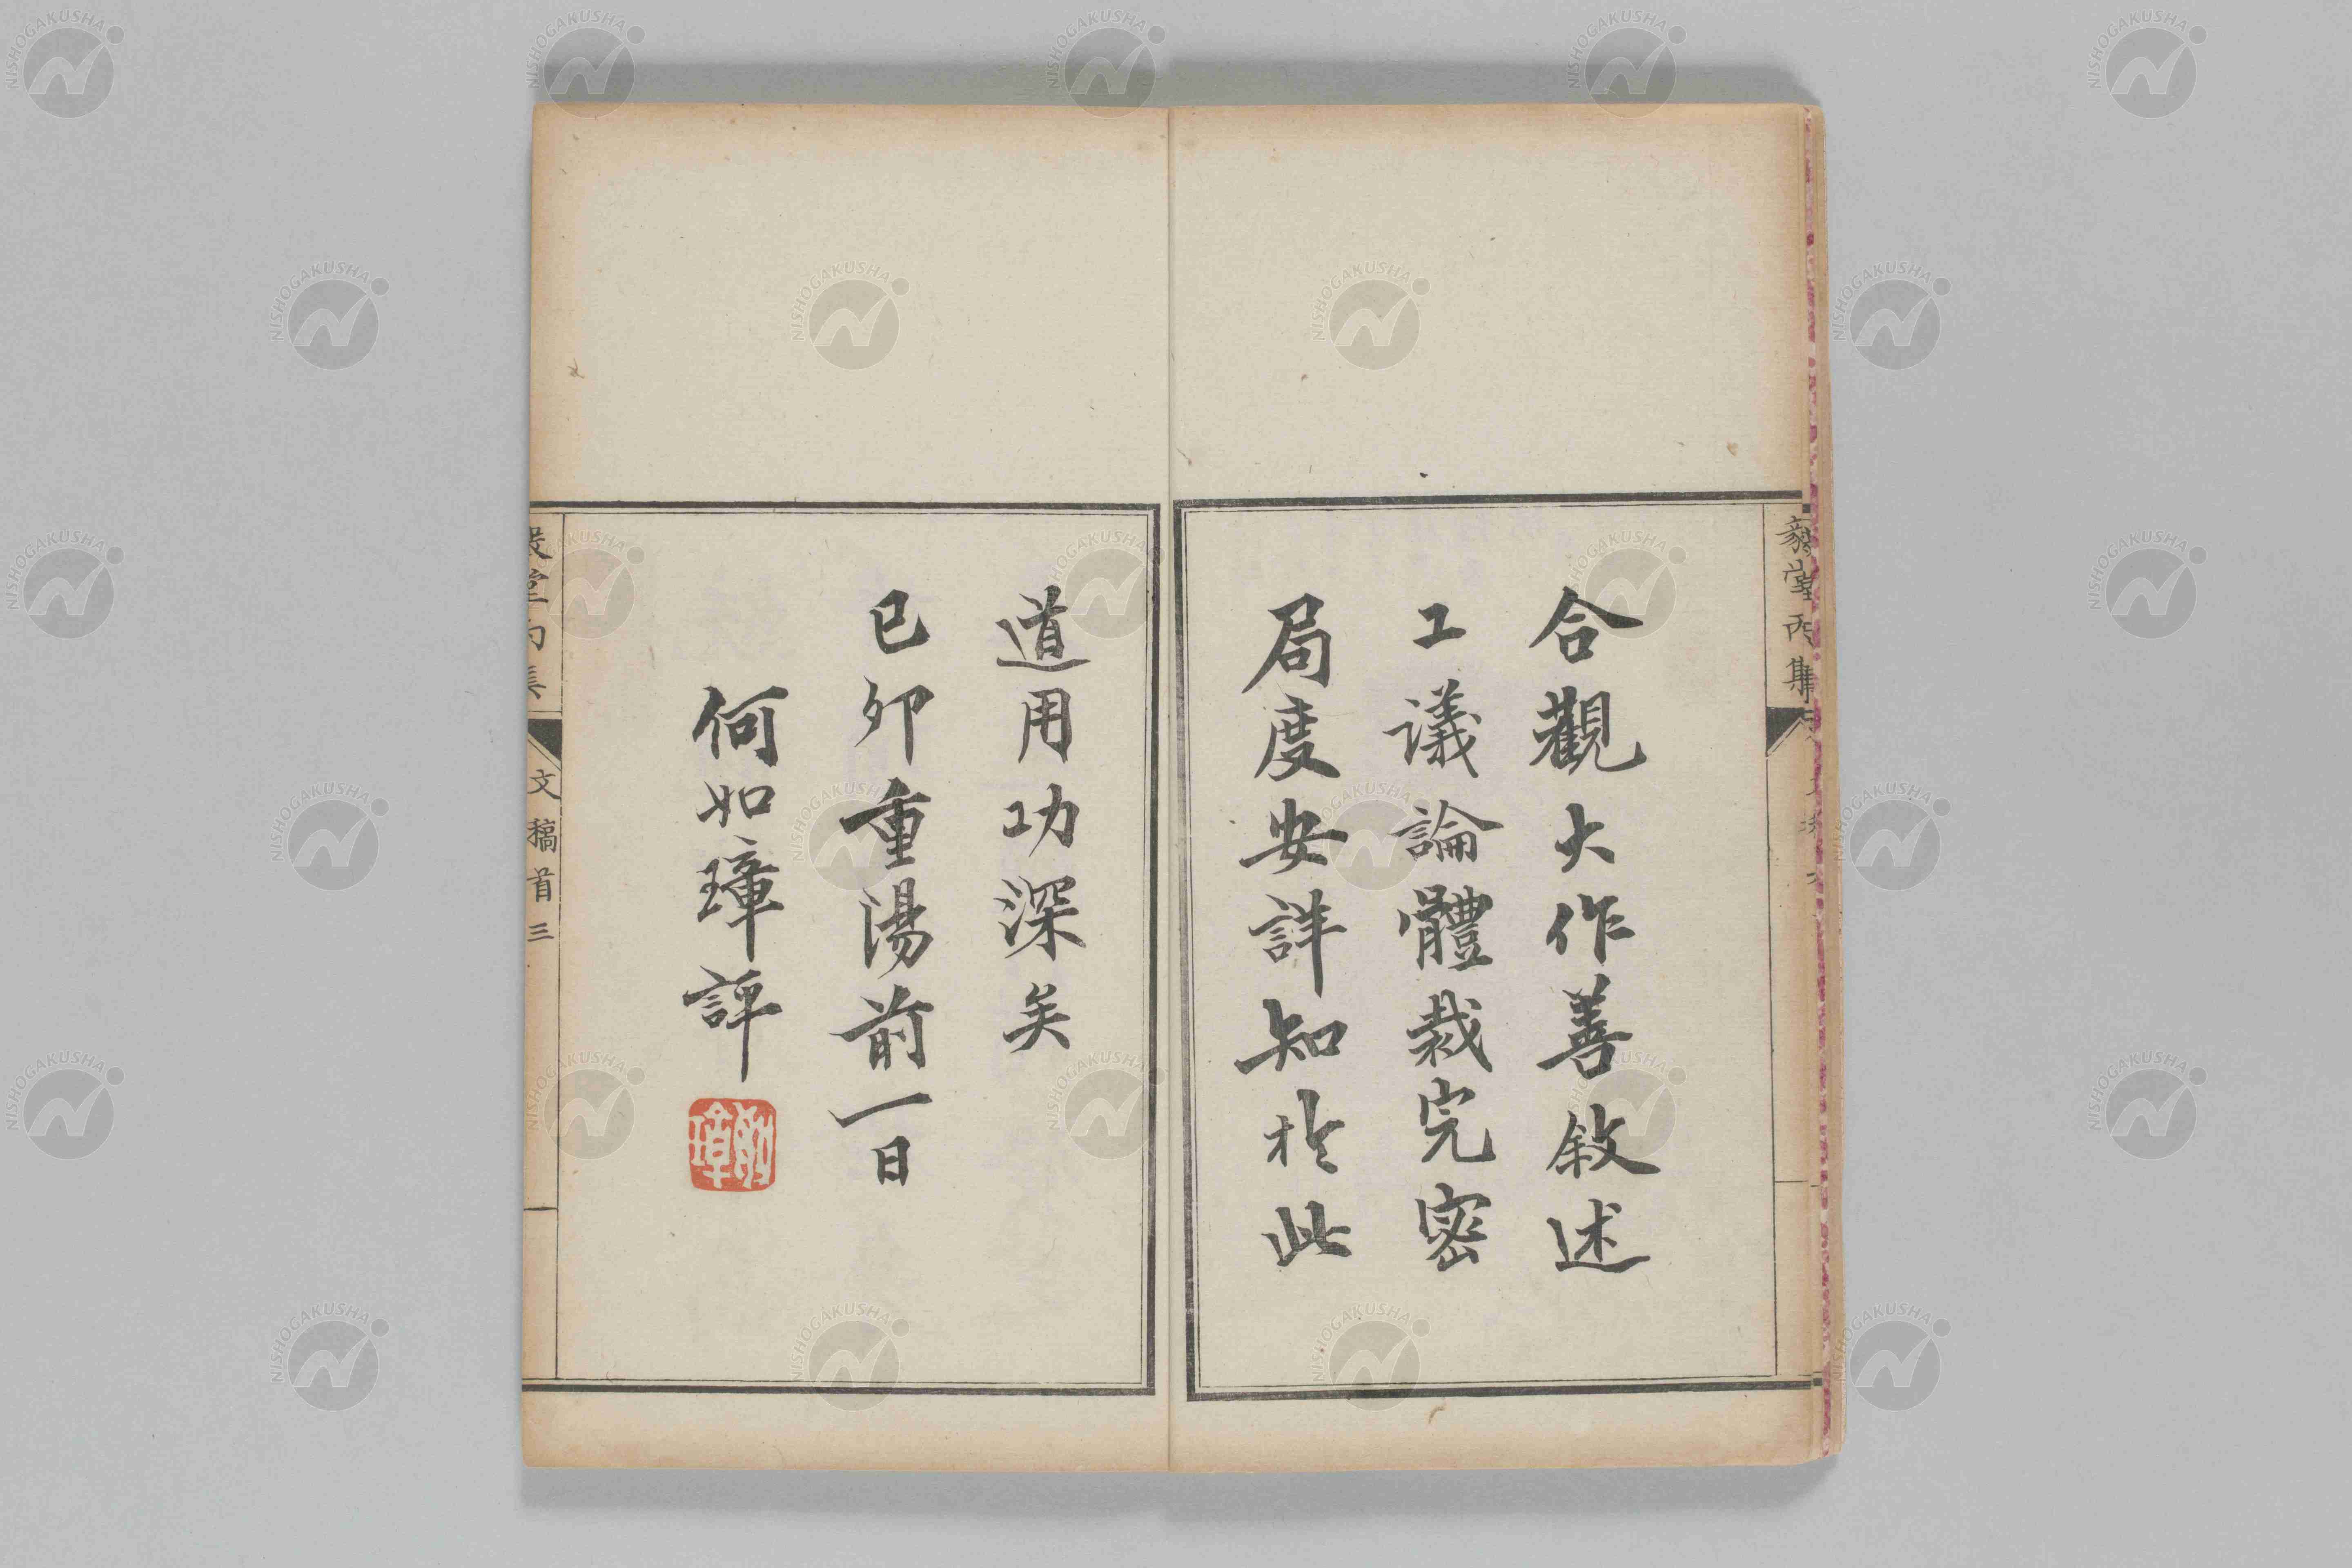 毅堂丙集
合觀大作善敘述
工議論體裁完密
局度安詳知於此
道用功深矣
己卯重陽前一日
何如璋評
如璋
文稿首三
NISHOGAKUSHA